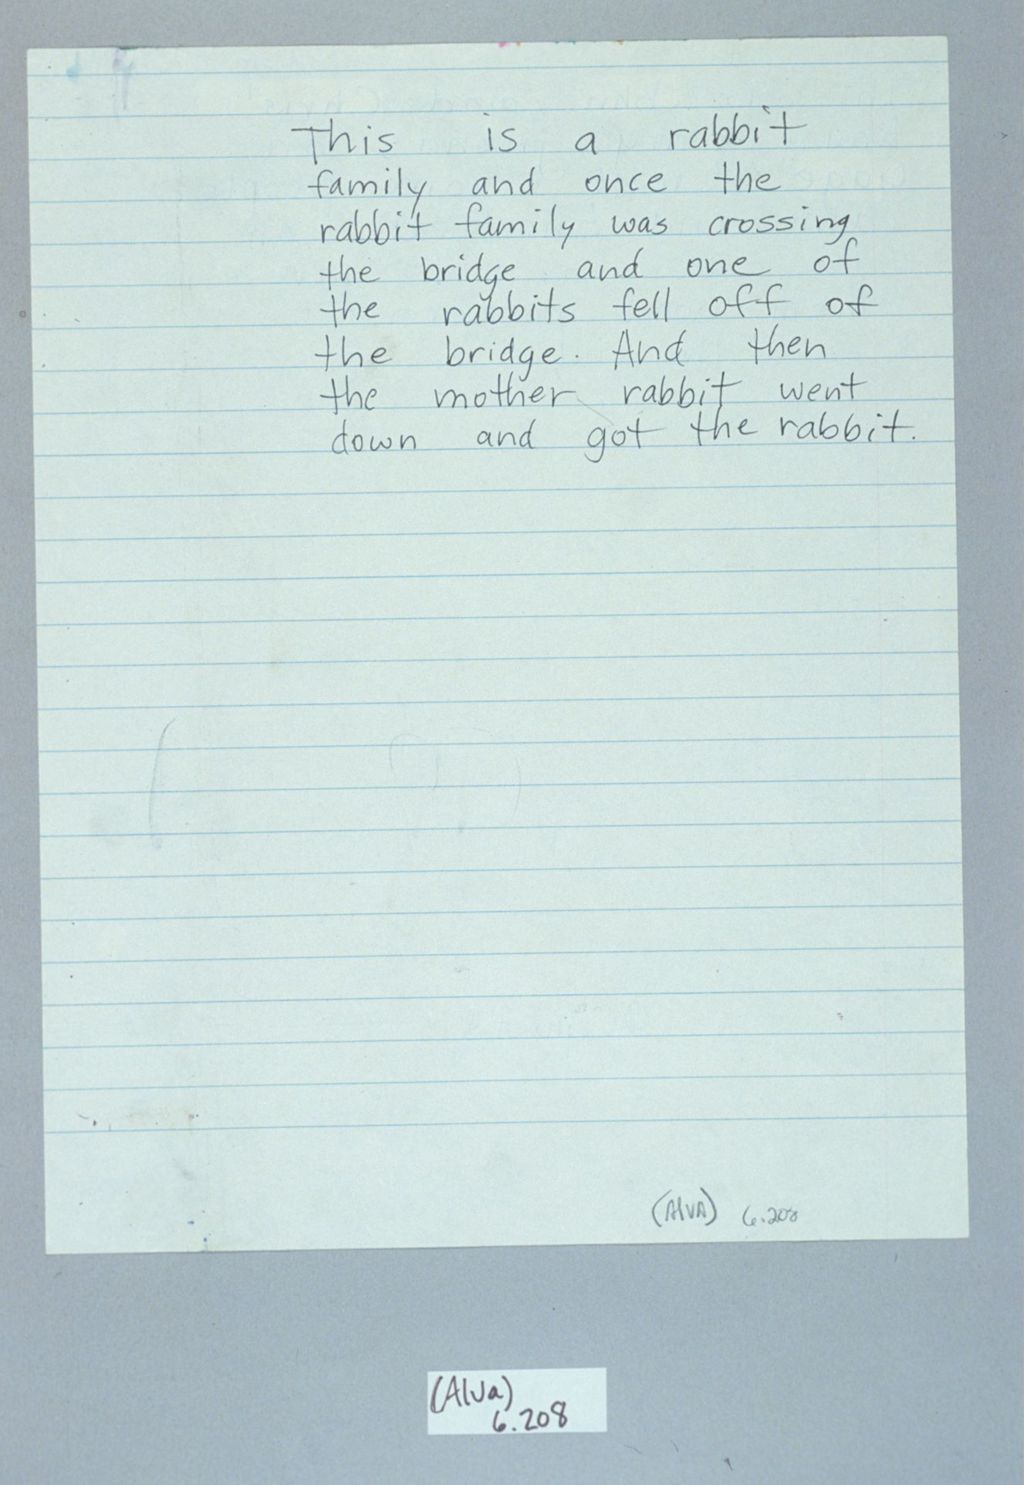 This is a rabbit
family and once the
rabbit family was crossing
the bridge and one of
the rabbits fell off of
the bridge. And then
the mother rabbit went
down and got the rabbit.
(AlvA) 6.208
(Alva)
6.208